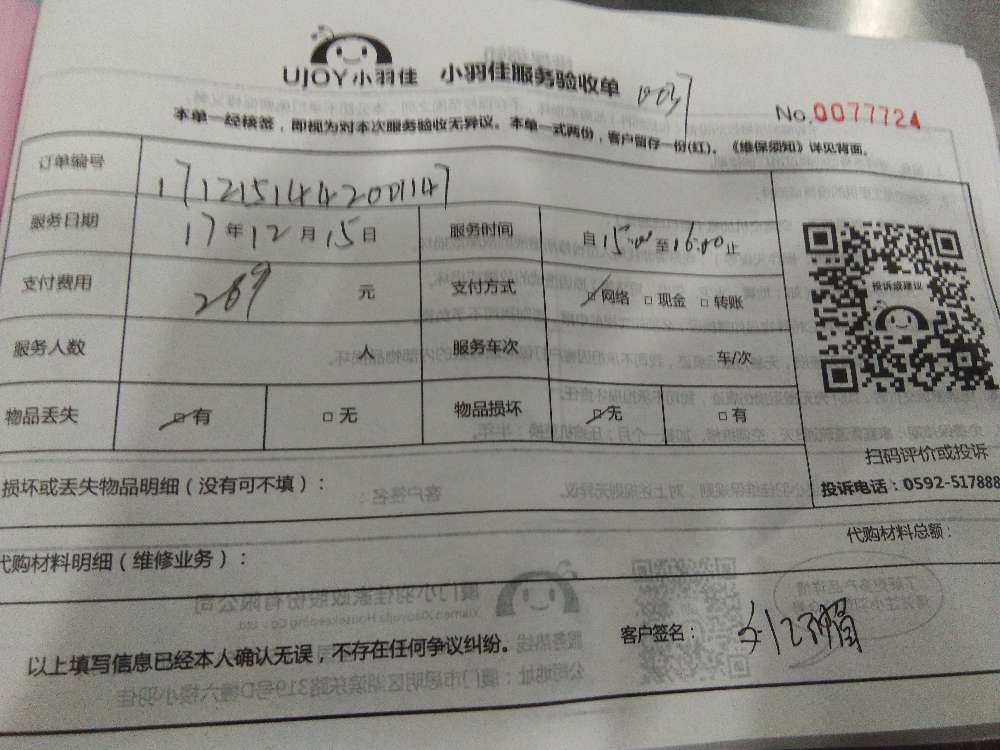 UJOY小羽佳 小羽佳服务验收单
No.0077724
本单一经核签，即视为对本次服务验收无异议。本单一式两份，客户留存一份(红)。《维保须知》详见背面。
订单编号 171215144200147
服务日期 17年12月15日 服务时间 自15:00至16:00止
支付费用 269元 支付方式 □网络 □现金 □转账
投诉或建议
服务人数 人 服务车次 车/次
物品丢失 □有 □无 物品损坏 □无 □有
扫码评价或投诉
损坏或丢失物品明细（没有可不填）：
投诉电话：0592-517888
代购材料明细（维修业务）： 代购材料总额：
以上填写信息已经本人确认无误，不存在任何争议纠纷。 客户签名：